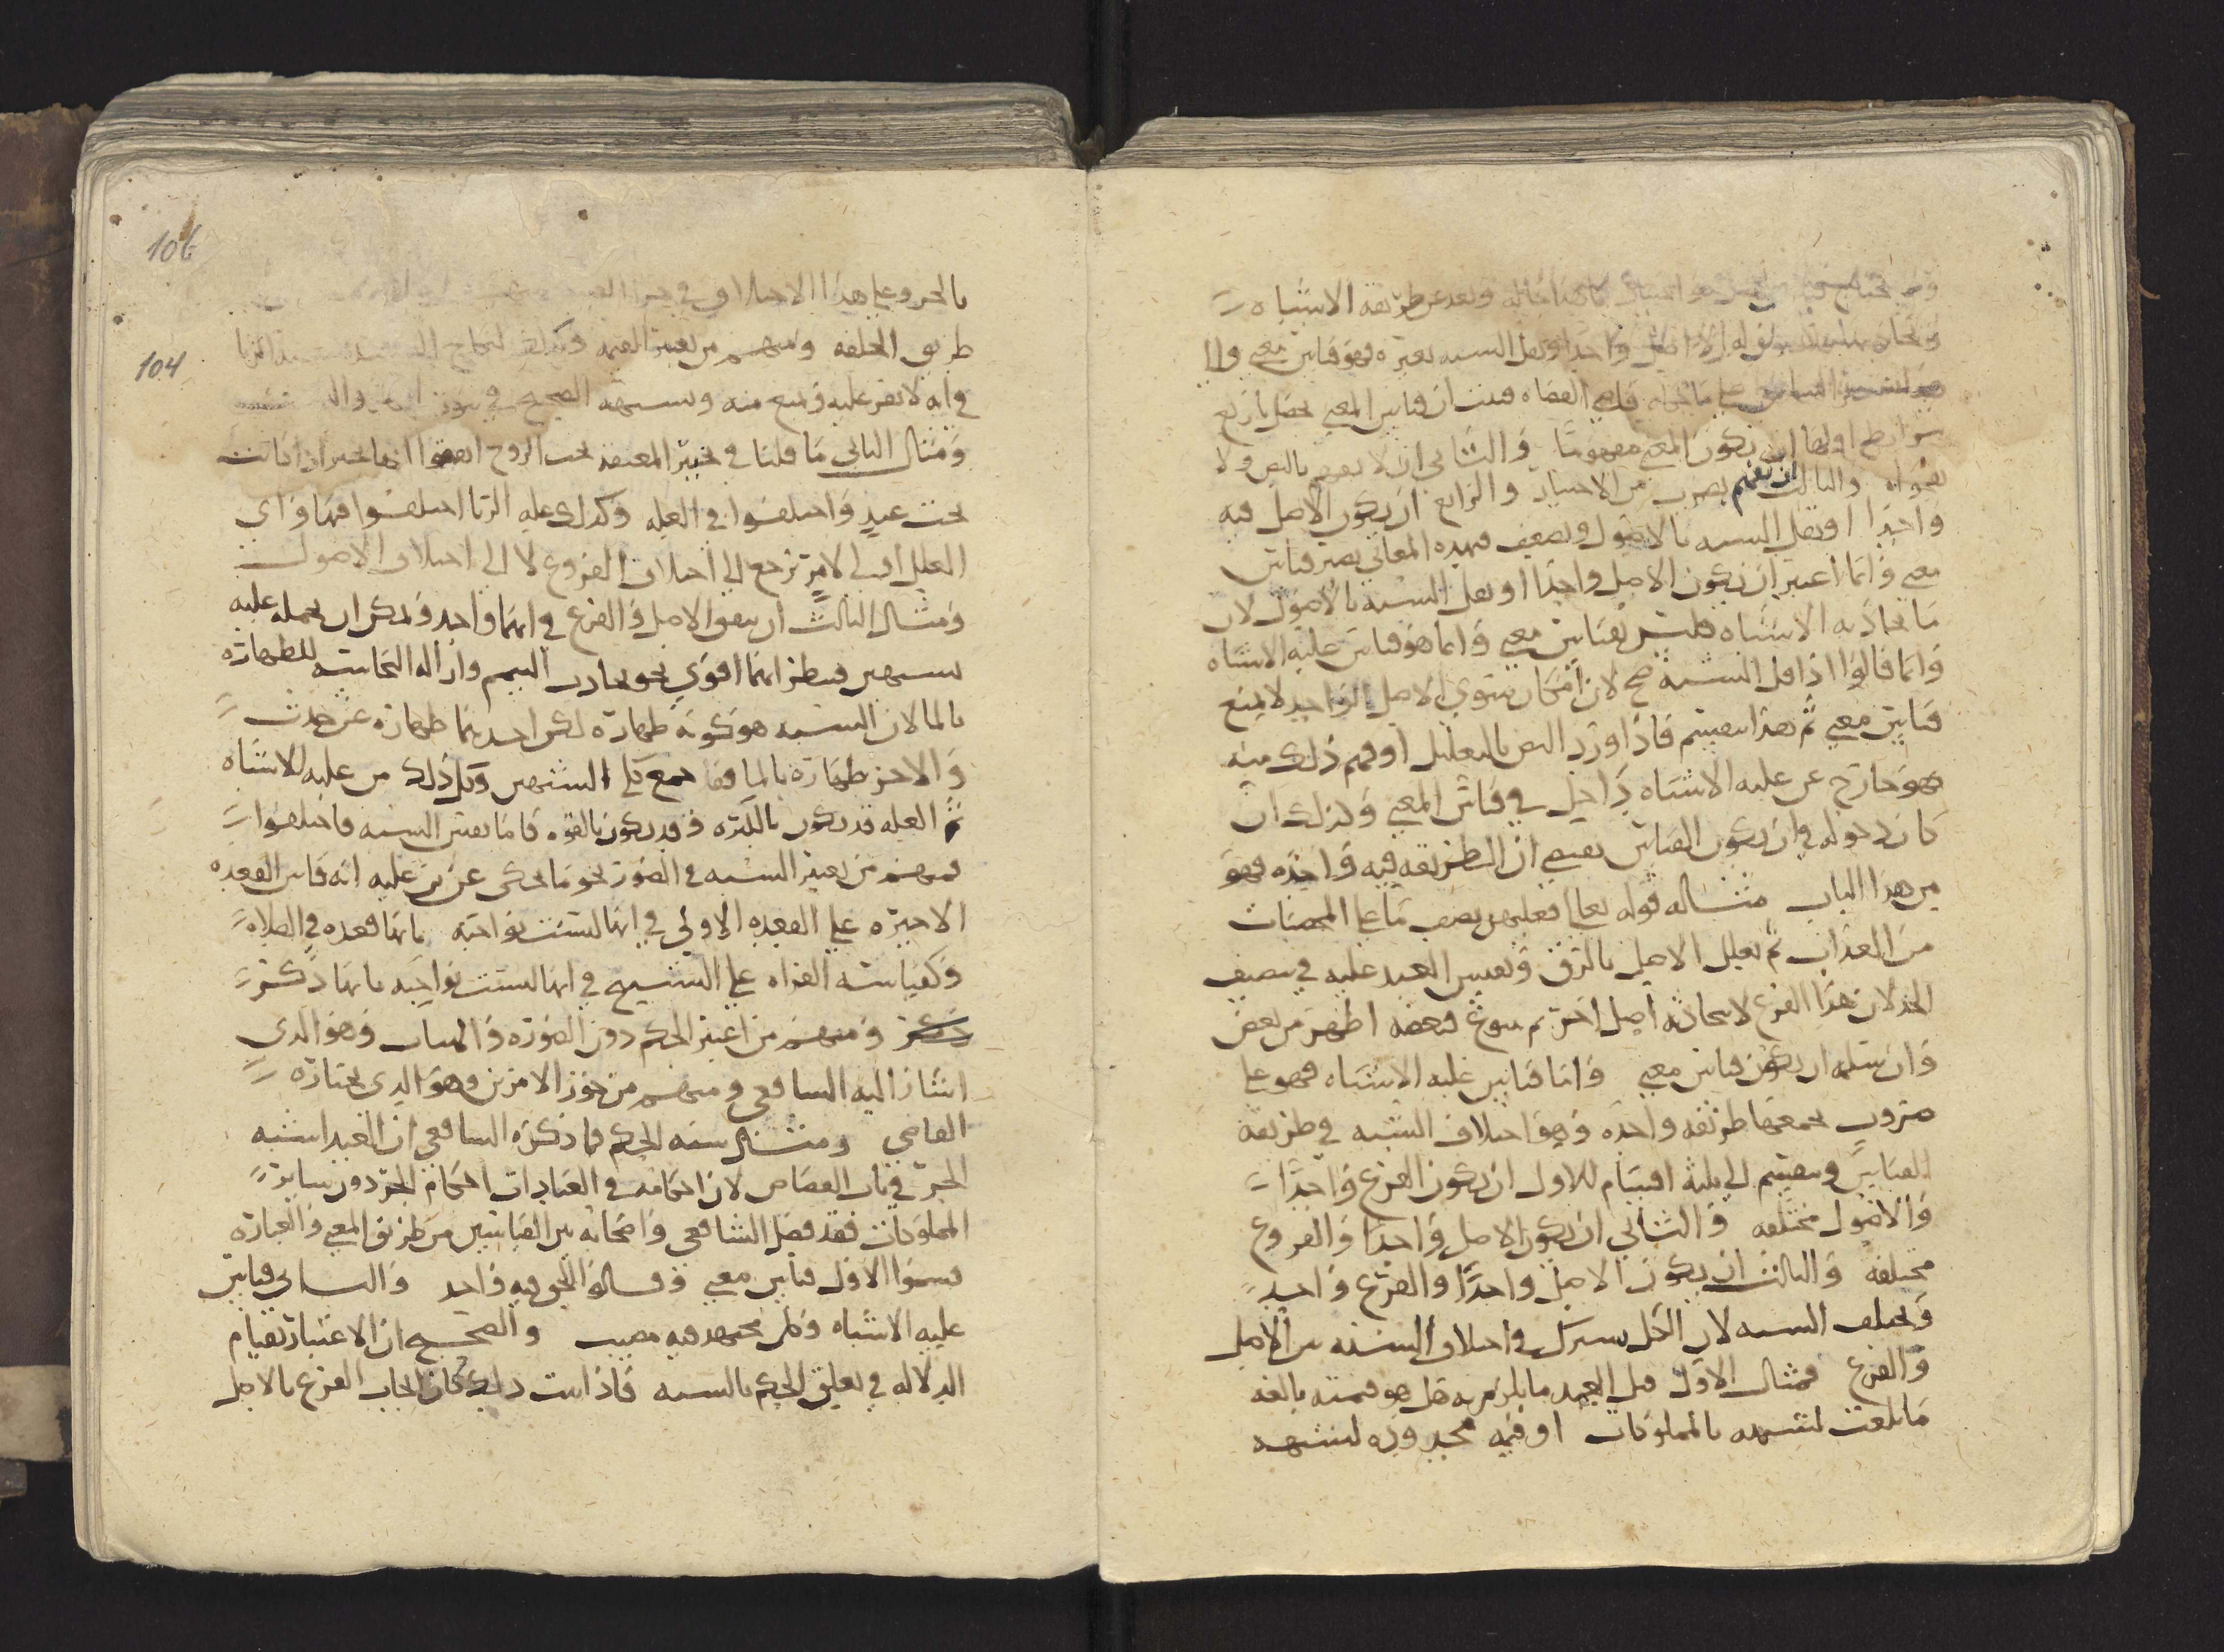 ولا يحتاج وبعد عن طريقه الاشباه
واحدا ويقل الشبه بغيره فهو قياس معنى والا
على ما قاله قاضي القضاه فثبت ان قياس المعنى يحصل باربع
شرايط اولها ان يكون المعنى مفهوما والثاني ان لا يفهم بالنص ولا
بفحواه والثالث ان يفهم بضرب من الاجتهاد والرابع ان يكون الاصل فيه
واحدا او يقل الشبه بالاصول ويضعف فبهذه المعاني يصير قياس
معنى وانما اعتبر ان يكون الاصل واحدا او يقل الشبه بالاصول لان
ما تجاذبه الاشباه فليس بقياس معنى وانما هو قياس غلبه الاشباه
وانما قالوا اذا قل الشبه صح لان امكان سوى الاصل الواحد لا يمنع
قياس معنى ثم هذا ينقسم فاذا ورد النص بالتعليل او فهم ذلك منه
فهو خارج عن غلبه الاشباه داخل في قياس المعنى وكذلك ان
كان دخوله في ان يكون القياس يقتضي ان الطريقه فيه واحده فهو
من هذا الباب مثاله قوله تعالى فعليهن نصف ما على المحصنات
من العذاب ثم تعليل الاصل بالرق وتعيين العبد عليه في تنصيف
الحد لان هذا الفرع لا يتجاذبه اصل اخر ثم يتنوع فبعضه اظهر من بعض
وان شمله ان يكون قياس معنى واما قياس غلبه الاشباه فهو على
ضروب يجمعها طريقه واحده وهو اختلاف الشبه في طريقه
القياس وينقسم الى ثلثه اقسام الاول ان يكون الفرع واحدا
والاصول مختلفه والثاني ان يكون الاصل واحدا والفروع
مختلفه والثالث ان يكون الاصل واحدا والفرع واحد
ويختلف الشبه لان الكل يشترك في اختلاف الشبه بين الاصل
والفرع فمثال الاول قتل العبد ما يلزم به هل هو قيمته بالغه
ما بلغت لشبهه بالمملوكات او قيمه محدوده لشبهه
106
104
بالحر وعلى هذا الاختلاف في
طريق الخلقه ومنهم من يعتبر القيمه وكذلك النكاح
في انه لا يقر عليه ويمنع منه ويشبهه الصحيح في
ومثال الثاني ما قلنا في تخيير المعتقه تحت الزوج اتفقوا انها تخير اذا كانت
تحت عبد واختلفوا في العله وكذلك عله الربا اختلفوا فيها واي
العلل اولى لامر يرجع الى اختلاف الفروع لا الى اختلاف الاصول
ومثال الثالث ان يتفق الاصل والفرع في انهما واحد ويمكن ان يحمله عليه
بشبهين فينظر ايهما اقوى نحو تجاذب التيمم وازاله النجاسه للطهاره
بالما لان الشبه هو كونه طهاره لكن احدهما طهاره عن حدث
والاخر طهاره بالما فقد جمع كلى الشبهين وكل ذلك من غلبه الاشباه
ثم العله قد يكون بالكثره وقد يكون بالقوه فاما بعين الشبه فاختلفوا
فمنهم من يعتبر الشبه في الصوره نحو ما يحكى عن ابن عليه انه قاس القعده
الاخيره على القعده الاولى في انها ليست بواجبه بانها قعده في الصلاه
وكقياسه القراه على التسبيح في انها ليست بواجبه بانها ذكر
ومنهم من اعتبر الحكم دون الصوره والهيات وهو الذي
اشار اليه الشافعي ومنهم من جوز الامرين وهو الذي يختاره
القاضي ومثال شبه الحكم فما ذكره الشافعي ان العبد اشبه
الحر في باب القصاص لان احكامه في العبادات احكام الحر دون ساير
المملوكات فقد فصل الشافعي واصحابه بين القياسين من طريق المعنى والعباره
فسموا الاول قياس معنى وقالوا الحق فيه واحد والثاني قياس
غلبه الاشباه وكل مجتهد فيه مصيب والصحيح ان الاعتبار بقيام
الدلاله في تعليق الحكم بالشبه فاذا ثبت ذلك كان الحاق الفرع بالاصل